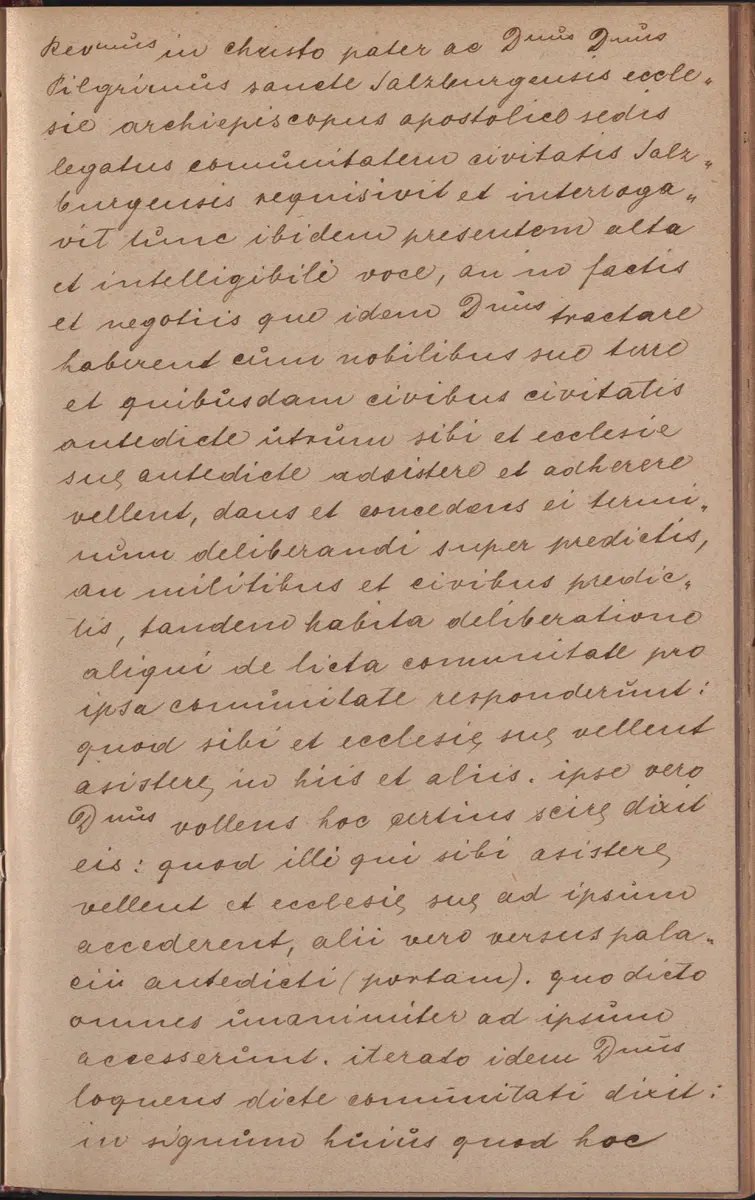 Revmus in christo pater ac Dnus Dnus
Pilgrimus sancte Salzburgensis eccle„
sie archiepiscopus apostolice sedis
legatus comunitatem civitatis Salz„
burgensis requisivit et interroga„
vit tunc ibidem presentem alta
et intelligibili voce, an in factis
et negotiis que idem Dnus tractare
haberent cum nobilibus sue terre
et quibusdam civibus civitatis
antedicte utrum sibi et ecclesie
suę antedicte adsistere et adherere
vellent, dans et concedens ei termi„
num deliberandi super predictis,
an militibus et civibus predic„
tis, tandem habita deliberatione
aliqui de licta comunitate pro
ipsa comunitate responderunt:
quod sibi et ecclesię suę vellent
asisterę in hiis et aliis. ipse vero
Dnus vollens hoc certius scirę dixit
eis: quod illi qui sibi asisterę
vellent et ecclesię suę ad ipsum
accederent, alii vero versus pala„
cii antedicti (portam). quo dicto
omnes unanimiter ad ipsum
accesserunt. iterato idem Dnus
loquens dicte comunitati dixit:
in signum huius quod hoc